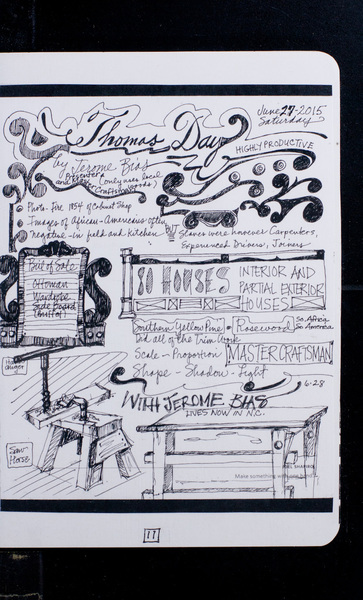 June 27-2015
Saturday
Thomas Day
HIGHLY PRODUCTIVE
by Jerome Bias
Presenter
and
only uses local
woods)
Photo-Fire 1854 of Cabinet Shop
Images of African-Americans often
negative - in field and kitchen.
BUT
Slaves were however Carpenters,
Experienced Drivers, Joiners
Bill of Sale
Ottoman
Wardrobe
Side Board
80 HOUSES
INTERIOR AND
PARTIAL EXTERIOR
HOUSES
Southern Yellow Pine
Rosewood
So. Africa
So America
Did all of the Trim Work
Scale - Proportion
MASTER CRAFTSMAN
Shape - Shadow - Light
6-28
WITH JEROME BIAS
LIVES NOW IN N.C.
Auger
Saw
Horse
Make something
11